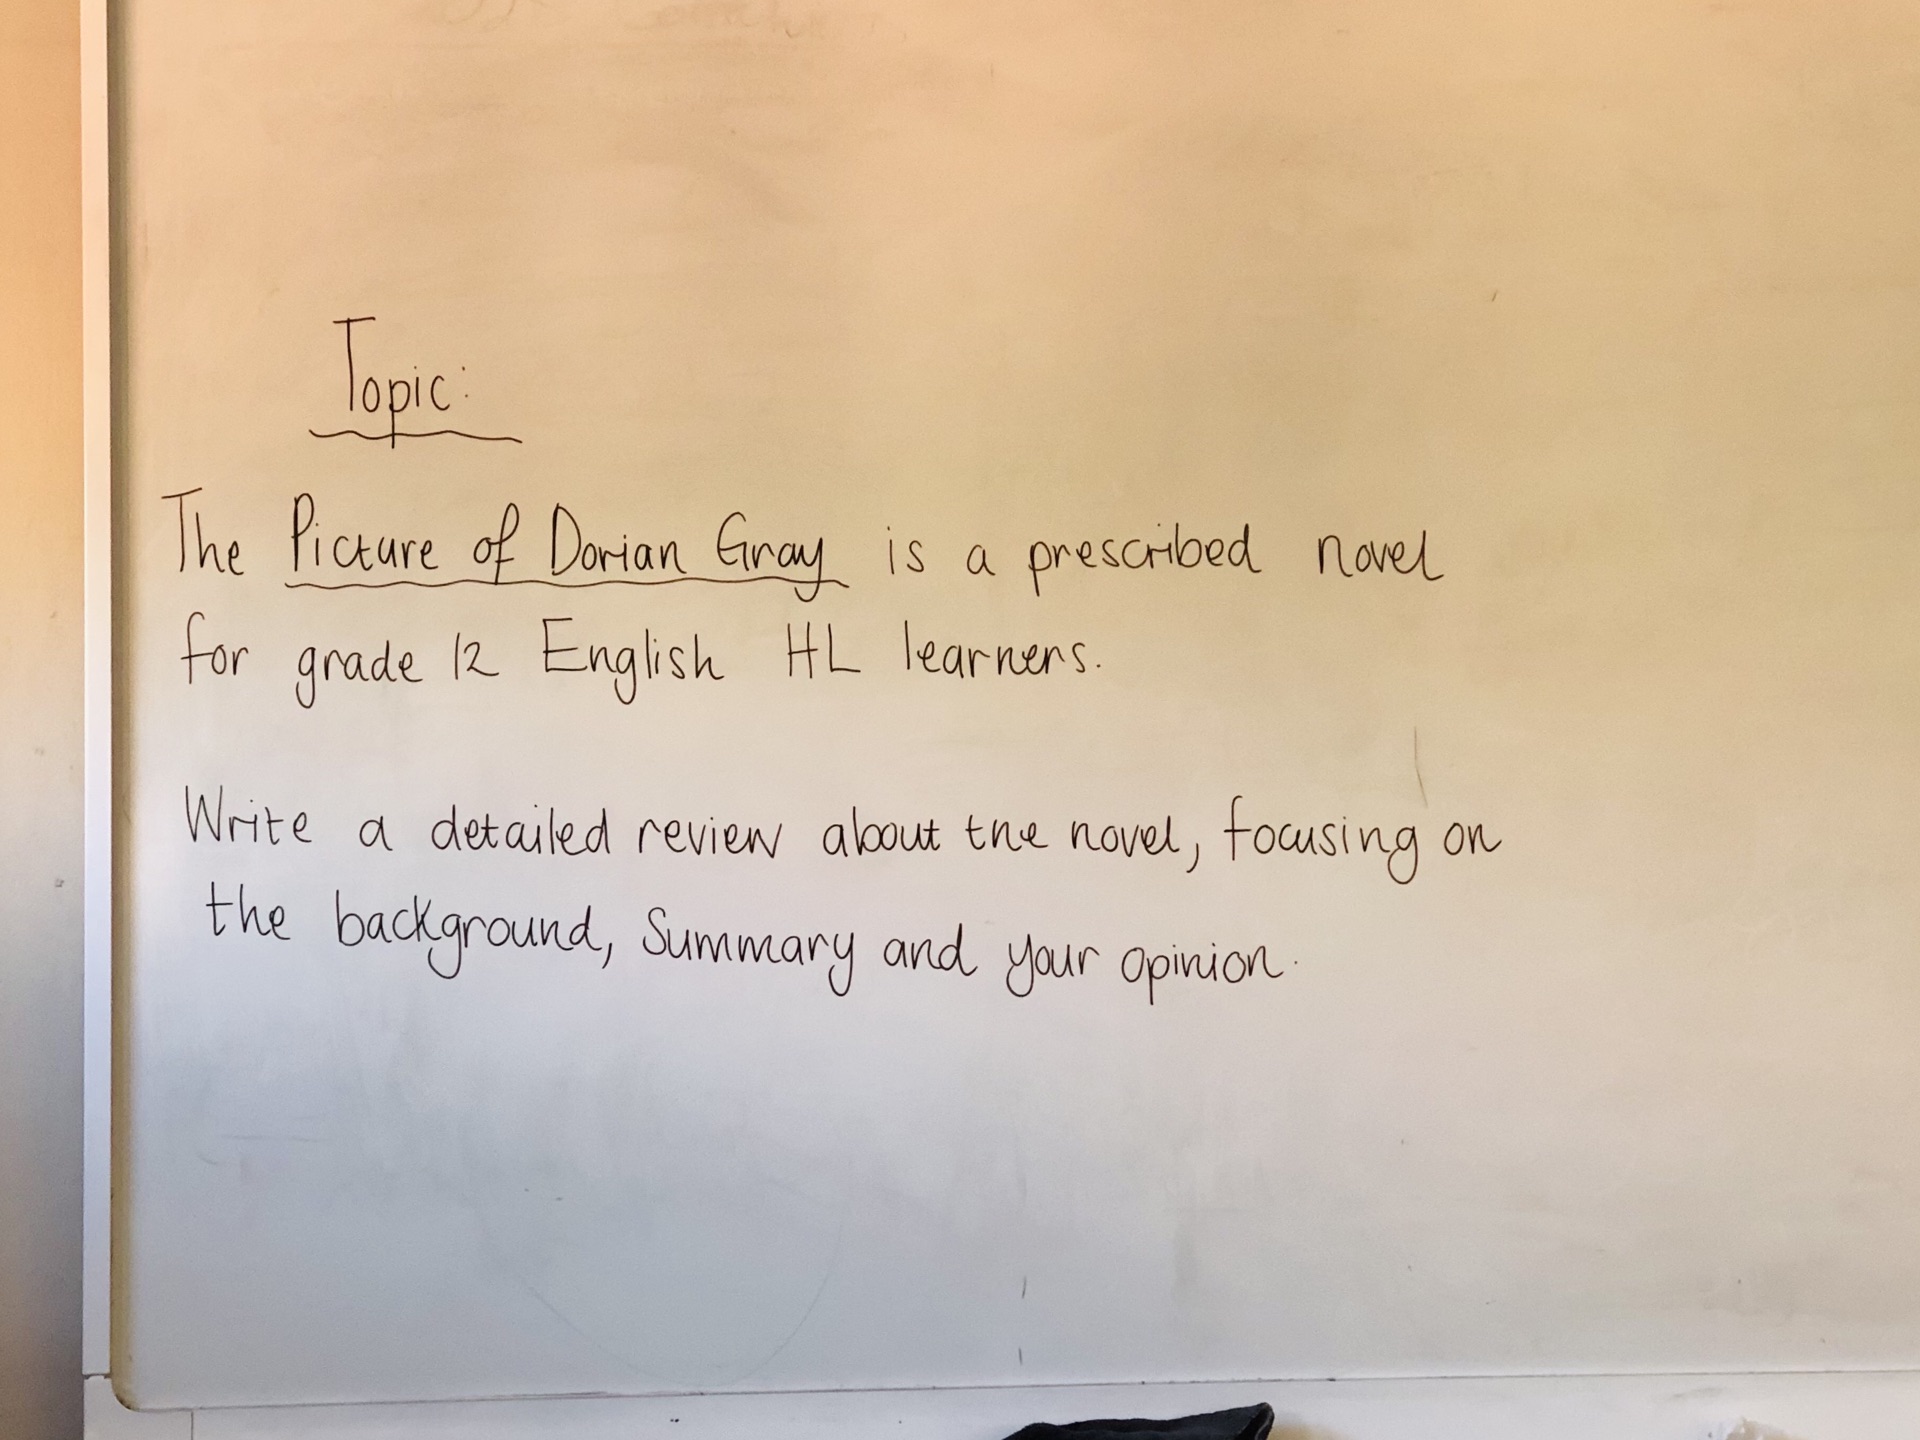 Topic:
The Picture of Dorian Gray is a prescribed novel
for grade 12 English HL learners.
Write a detailed review about the novel, focusing on
the background, Summary and your opinion.